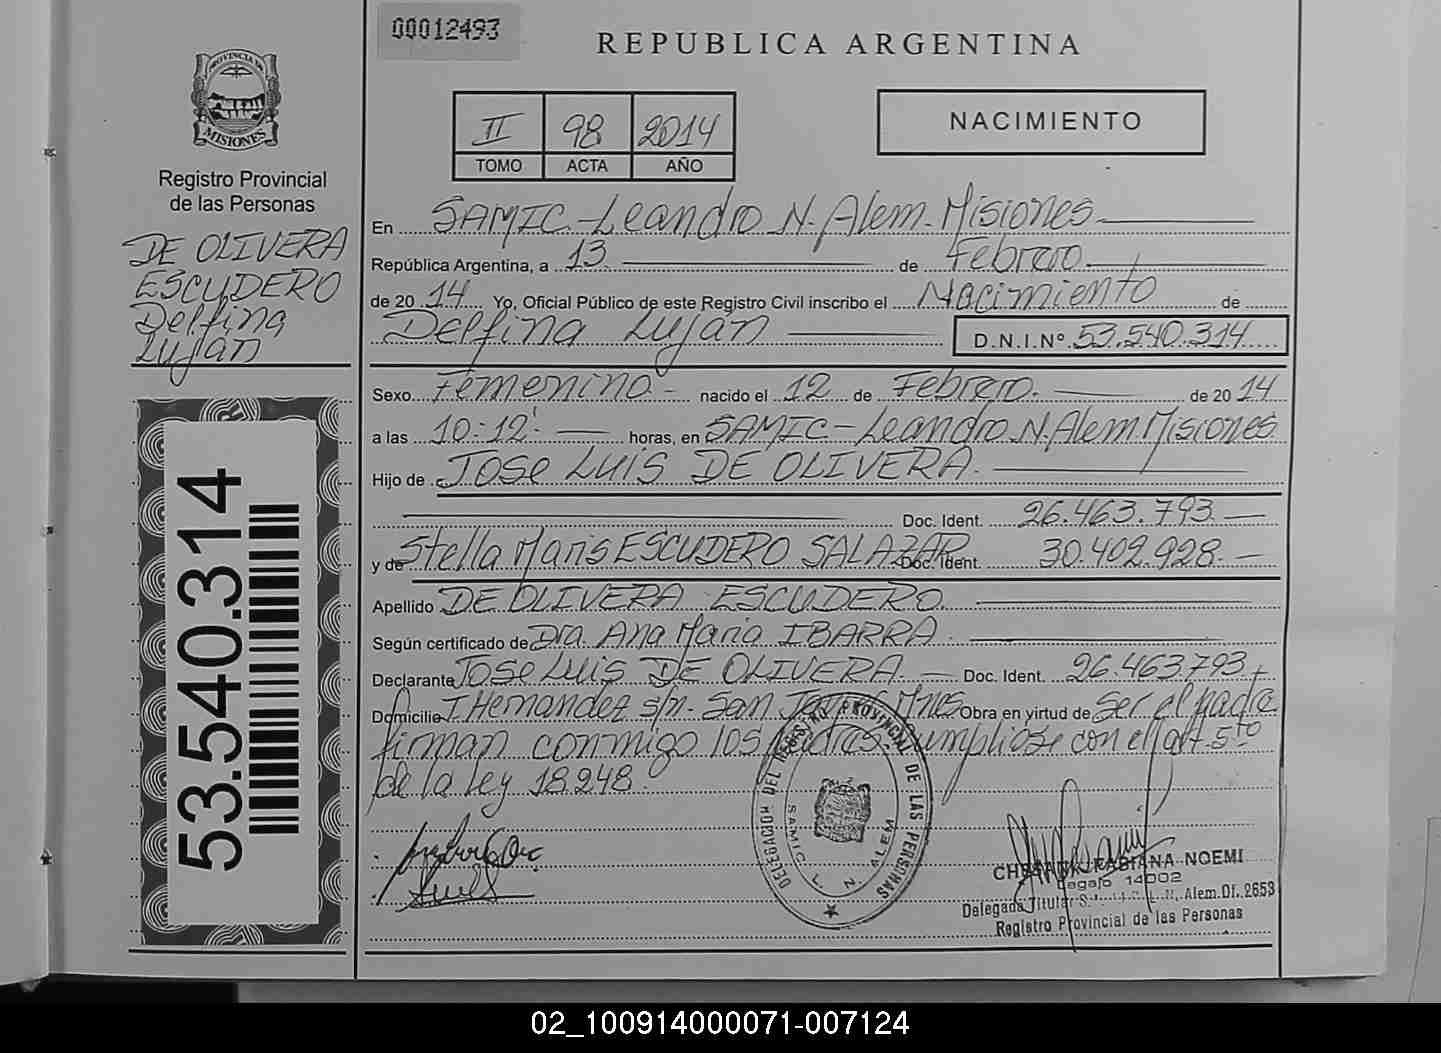 00012493
REPUBLICA ARGENTINA
PROVINCIA DE
MISIONES
Registro Provincial
de las Personas
II 98 2014
TOMO ACTA AÑO
NACIMIENTO
DE OLIVERA
ESCUDERO
Delfina
Luján
En SAMIC - Leandro N. Alem - Misiones
República Argentina, a 13 de Febrero
de 20 14 Yo, Oficial Público de este Registro Civil inscribo el Nacimiento de
Delfina Luján D.N.I.Nº 53.540.314
Sexo Femenino - nacido el 12 de Febrero. de 20 14
a las 10:12' horas, en SAMIC - Leandro N. Alem Misiones
Hijo de Jose Luis DE OLIVERA
Doc. Ident. 26.463.793
y de Stella Maris ESCUDERO SALAZAR Doc. Ident. 30.402.928
Apellido DE OLIVERA ESCUDERO
Según certificado de Dra. Ana Maria IBARRA
Declarante Jose Luis DE OLIVERA - Doc. Ident. 26.463.793
Domicilio Hernandez s/n - San Mnes Obra en virtud de Ser el padre
firman conmigo los padres. Cumpliose con el art. 5to
de la Ley 18.248.
DELEGACION DEL REGISTRO PROVINCIAL DE LAS PERSONAS
SAMIC L. N. ALEM
FABIANA NOEMI
Legajo 14002
Delegada Titular Alem. Of. 2653
Registro Provincial de las Personas
53.540.314
02_100914000071-007124